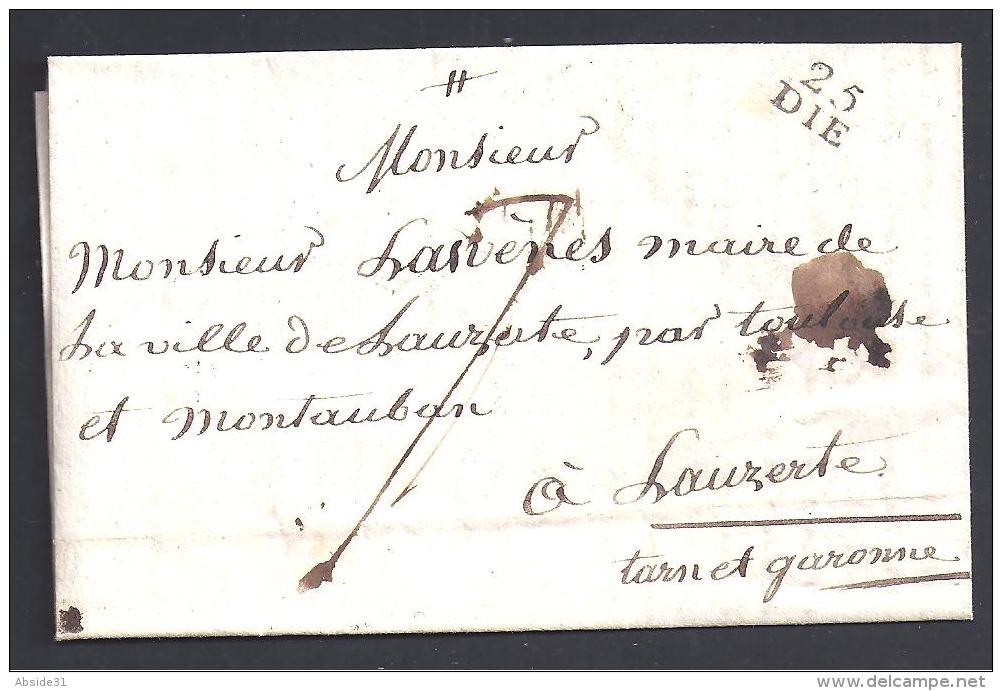 25
DIE
Monsieur
7
Monsieur Lasvènes maire de
La ville de Lauzerte, par toulouse
et Montauban
à Lauzerte
tarn et garonne
Abside31
www.delcampe.net